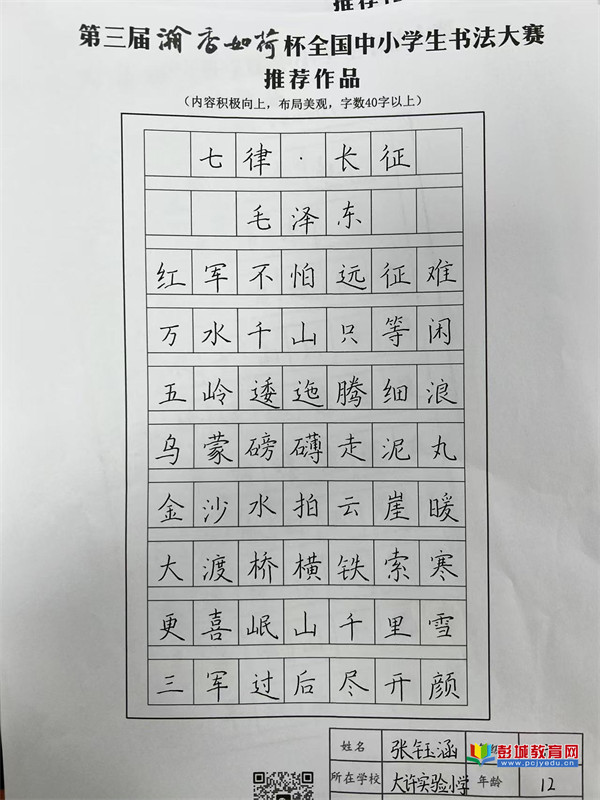 推荐作
第三届瀚香如荷杯全国中小学生书法大赛
推荐作品
（内容积极向上，布局美观，字数40字以上）
七律·长征
毛泽东
红军不怕远征难
万水千山只等闲
五岭逶迤腾细浪
乌蒙磅礴走泥丸
金沙水拍云崖暖
大渡桥横铁索寒
更喜岷山千里雪
三军过后尽开颜
姓名 张钰涵
彭城教育网
www.pcjyedu.cn
所在学校 大许实验小学 年龄 12